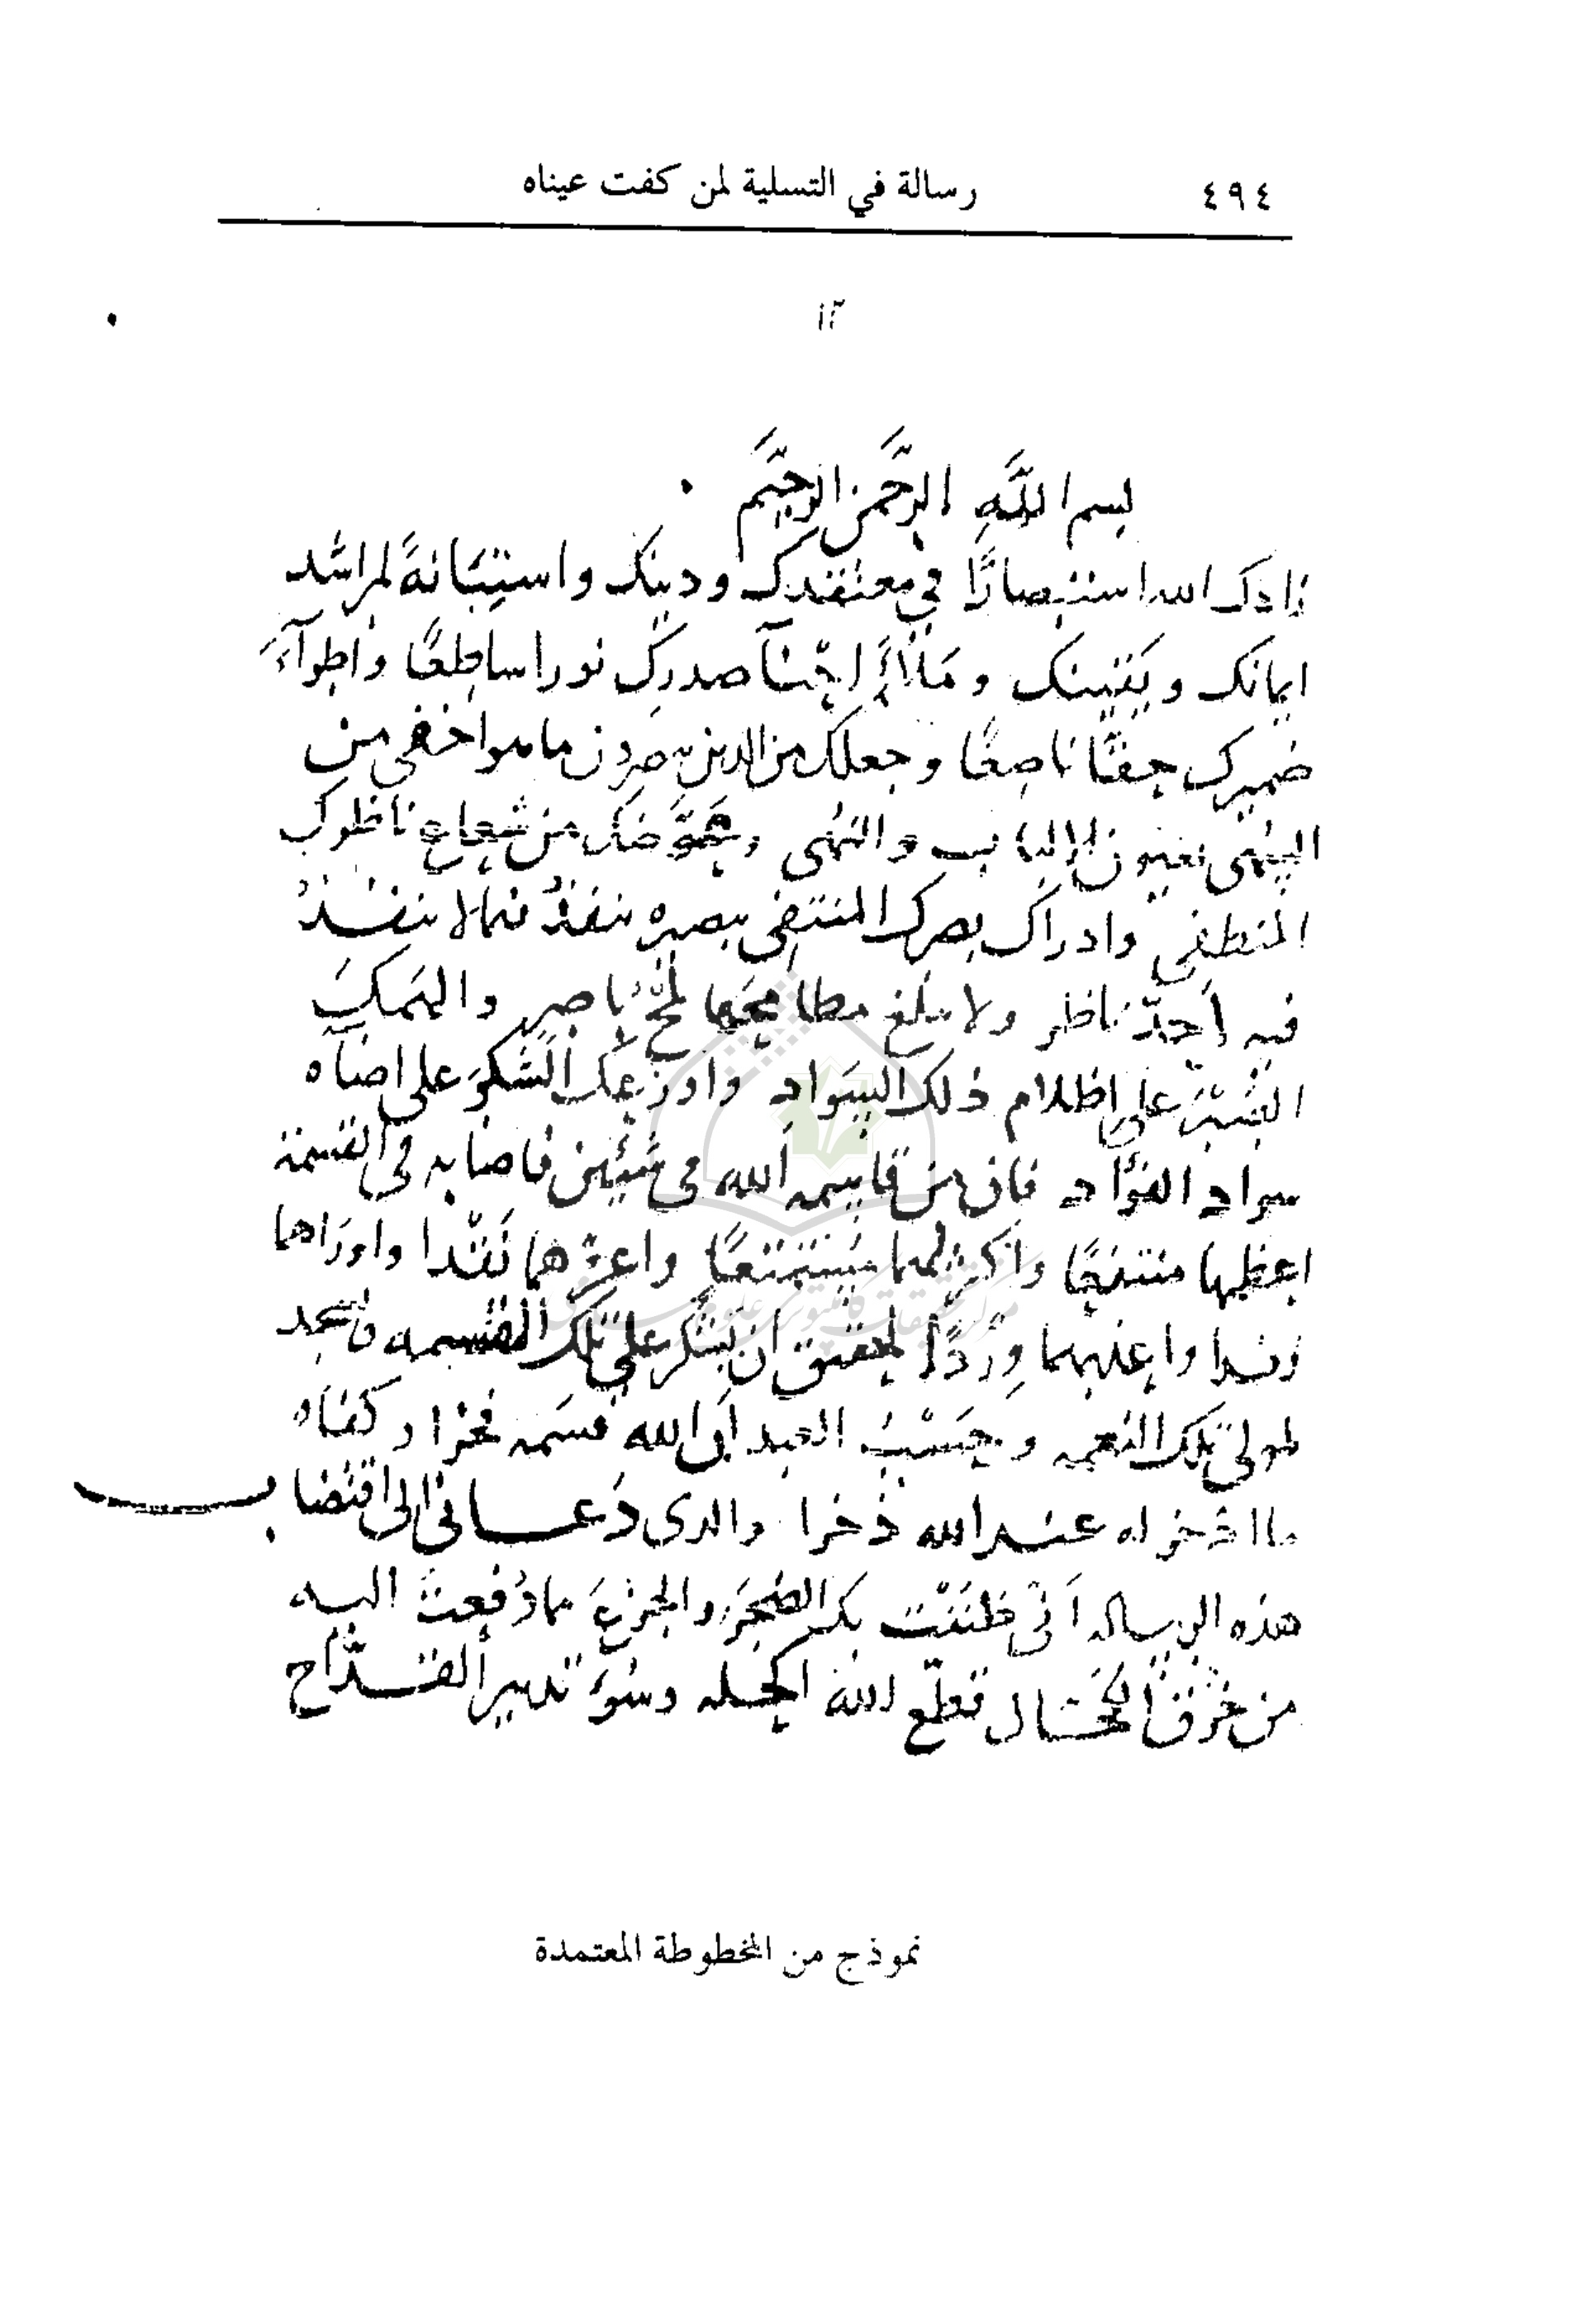 ٤٩٤ رسالة في التسلية لمن كفت عيناه
١٢
بسم اللَّهِ الرَّحمن الرحيم
زادك الله استبصارًا في معتقدك ودينك واستبانةً لمراشد
ايمانك ويقينك ومَلأ احنآ صدرك نورا ساطعًا واطوآء
ضميرك حقًّا ناصعًا وجعلك من الذين يبصرون ما هو اخفى من
السُهى بعيون الالباب والنُهى وعَوَّضك من شعاع ناظرك
المنطفى وادراك بصرك المنتفى بصيرة تنفذُ فيما لا ينفذُ
فيه اَحدّ ناظر ولا يبلغ مطامحها لمحُ باصر والهمك
الصَّبْرَ على اظلام ذلك السَواد واوزعك الشكرَ على اضآه
سواد الفؤاد فان من قاسمه الله في شيئين فاصابه في القسمة
اعظمها منتفعًا واكرمهما مستمتعًا واعزّهما نَقْدا واوراهما
زندا واعذبهما وِرْدًا لحقيق ان يشكر على تلك القسمه فاسجد
لمولى تلك النعمه وحَسْبُ العبد انَّ الله قسَمه فخرا وكفاه
ما اذخر له عند الله ذُخرا والذى دَعــانى الى اقتضاب
هذه الرساله اَنّى ظنَنْت بك الضجَرَ والجزعَ مما دُفِعتَ اليه
من خُرْق الكَحّال قطّع الله اكحله وسُوء تدبير القـدّاح
نموذج من المخطوطة المعتمدة